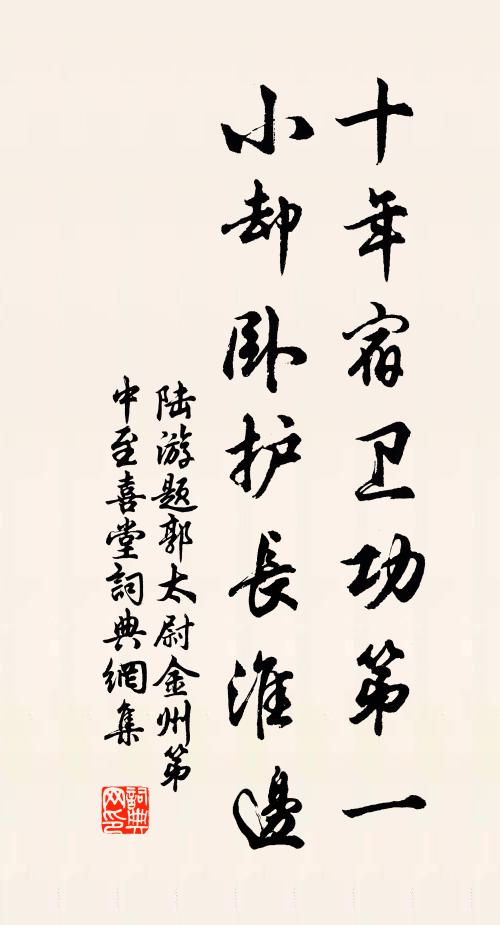 十年宿卫功第一
小却卧护長淮邊
陆游题郭太尉金州第
中至喜堂詞典網集
詞典
网印